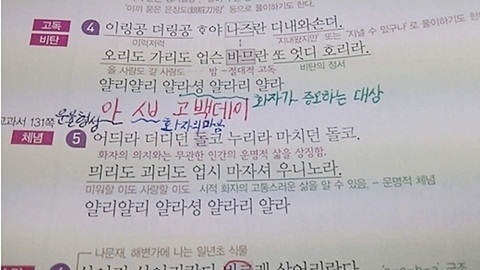 '이끼 묻은 은장도(銀粧刀)' 등으로 풀이하기도 한다.
고독 비탄 4 이링공 뎌링공 ᄒᆞ야 나즈란 디내와손뎌.
이럭저럭 '지내왔지만' 또는 '지낼 수 있구나'로 풀이하기도 한다.
오리도 가리도 업슨 바므란 ᄯᅩ 엇디 호리라.
올 사람도 갈 사람도 밤-절대적 고독 비탄의 정서
얄리얄리 얄라셩 얄라리 얄라
안 스브 고백데이 화자가 증오하는 대상
교과서 131쪽 운율형성 화자의마음
체념 5 어듸라 더디던 돌코 누리라 마치던 돌코.
화자의 의지와는 무관한 인간의 운명적 삶을 상징함.
믜리도 괴리도 업시 마자셔 우니노라.
미워할 이도 사랑할 이도 시적 화자의 고통스러운 삶을 알 수 있음. - 운명적 체념
얄리얄리 얄라셩 얄라리 얄라
나문재, 해변가에 나는 일년초 식물